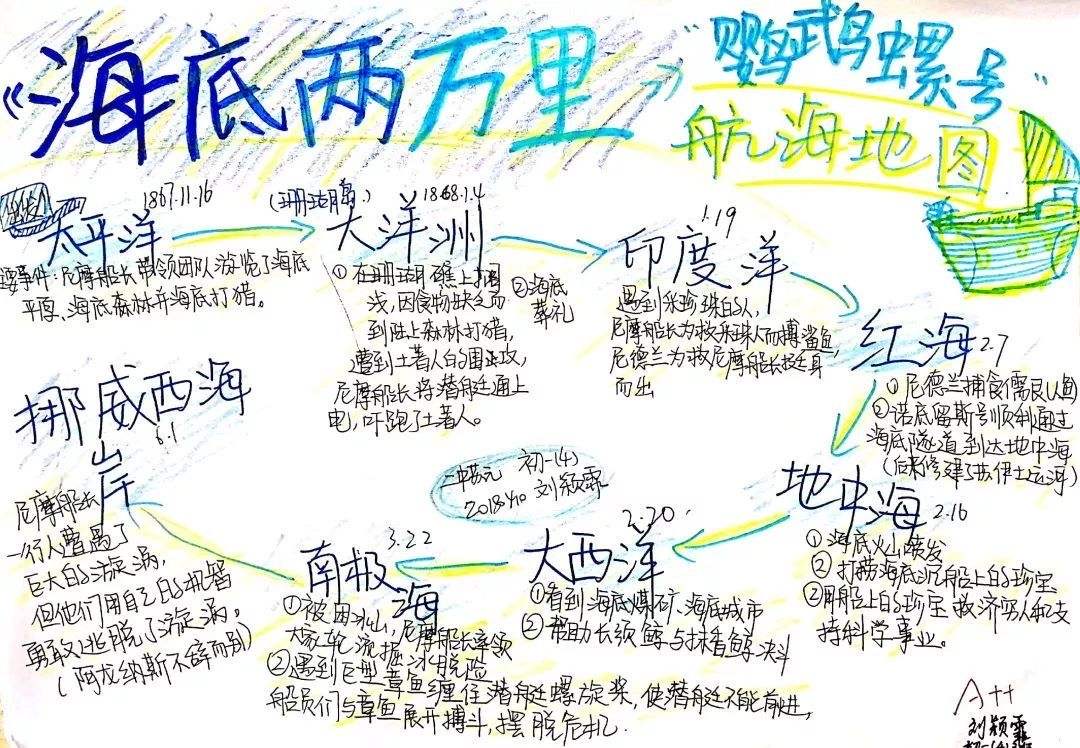 《海底两万里》
"鹦鹉螺号"
航海地图
出发
太平洋
1867.11.16
要事件：尼摩船长带领团队游览了海底
平原、海底森林并海底打猎。
(珊瑚海)
大洋洲
1868.1.4
①在珊瑚礁上搁
浅，因食物缺乏而
到陆上森林打猎，
遭到土著人的围攻，
尼摩船长将潜艇通上
电，吓跑了土著人。
②海底
葬礼
印度洋
1.19
遇到采珍珠的人，
尼摩船长为救采珠人而搏鲨鱼，
尼德兰为救尼摩船长挺身
而出
红海
2.7
①尼德兰捕食儒艮(鱼)
②诺底留斯号顺利通过
海底隧道到达地中海
(后来修建了苏伊士运河)
地中海
2.16
①海底火山喷发
②打捞海底沉船上的珍宝
③用船上的珍宝救济穷人和支
持科学事业。
大西洋
2.20
①看到海底煤矿、海底城市
②帮助长须鲸与抹香鲸决斗
南极海
3.22
①被困冰山，尼摩船长率领
大家轮流掘冰脱险
②遇到巨型章鱼缠住潜艇螺旋桨，使潜艇不能前进，
船员们与章鱼展开搏斗，摆脱危机.
挪威西海岸
6.1
尼摩船长
一行人遭遇了
巨大的漩涡，
但他们用自己的机智
勇敢逃脱了漩涡。
(阿龙纳斯不辞而别)
初一(4)
刘颖霏
A++
刘颖霏